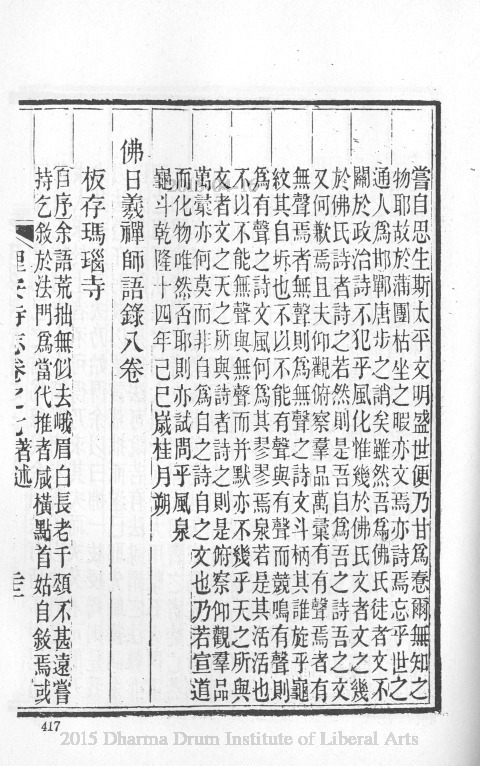 嘗自思生斯太平文明盛世便乃甘爲惷爾無知之
物耶故於蒲團枯坐之暇亦文焉亦詩焉忘乎世之
通人爲邯鄲唐步之誚矣雖然吾爲佛氏徒者文不
關於政治詩不犯乎風化惟幾於佛氏文者文之幾
於佛氏詩者詩之若然則是吾自爲吾之詩吾之文
又何歉焉且夫仰觀俯察羣品萬彙有有聲焉者有
無聲焉者無聲則爲無聲之詩文斗柄其誰旋乎龜
紋其自坼也不以不能有聲與有聲而競鳴有聲則
爲有聲之詩文風何爲其翏翏焉泉若是其活活也
不以不能無聲與無聲而并默亦不幾乎天之所與
文者文之天之所與詩者詩之則是俯察仰觀羣品
萬彙亦何莫而非自爲自之詩自之文也乃若宣道
而化物唯然否耶則亦試問乎風泉
龜斗乾隆十四年己巳嵗桂月朔
佛日義禪師語錄八卷
板存瑪瑙寺
自序余語荒拙無似去峨眉白長老千頌不甚遠嘗
持乞敘於法門爲當代推者咸橫點首姑自敘焉或
理安寺志卷之七著述
417
2015 Dharma Drum Institute of Liberal Arts